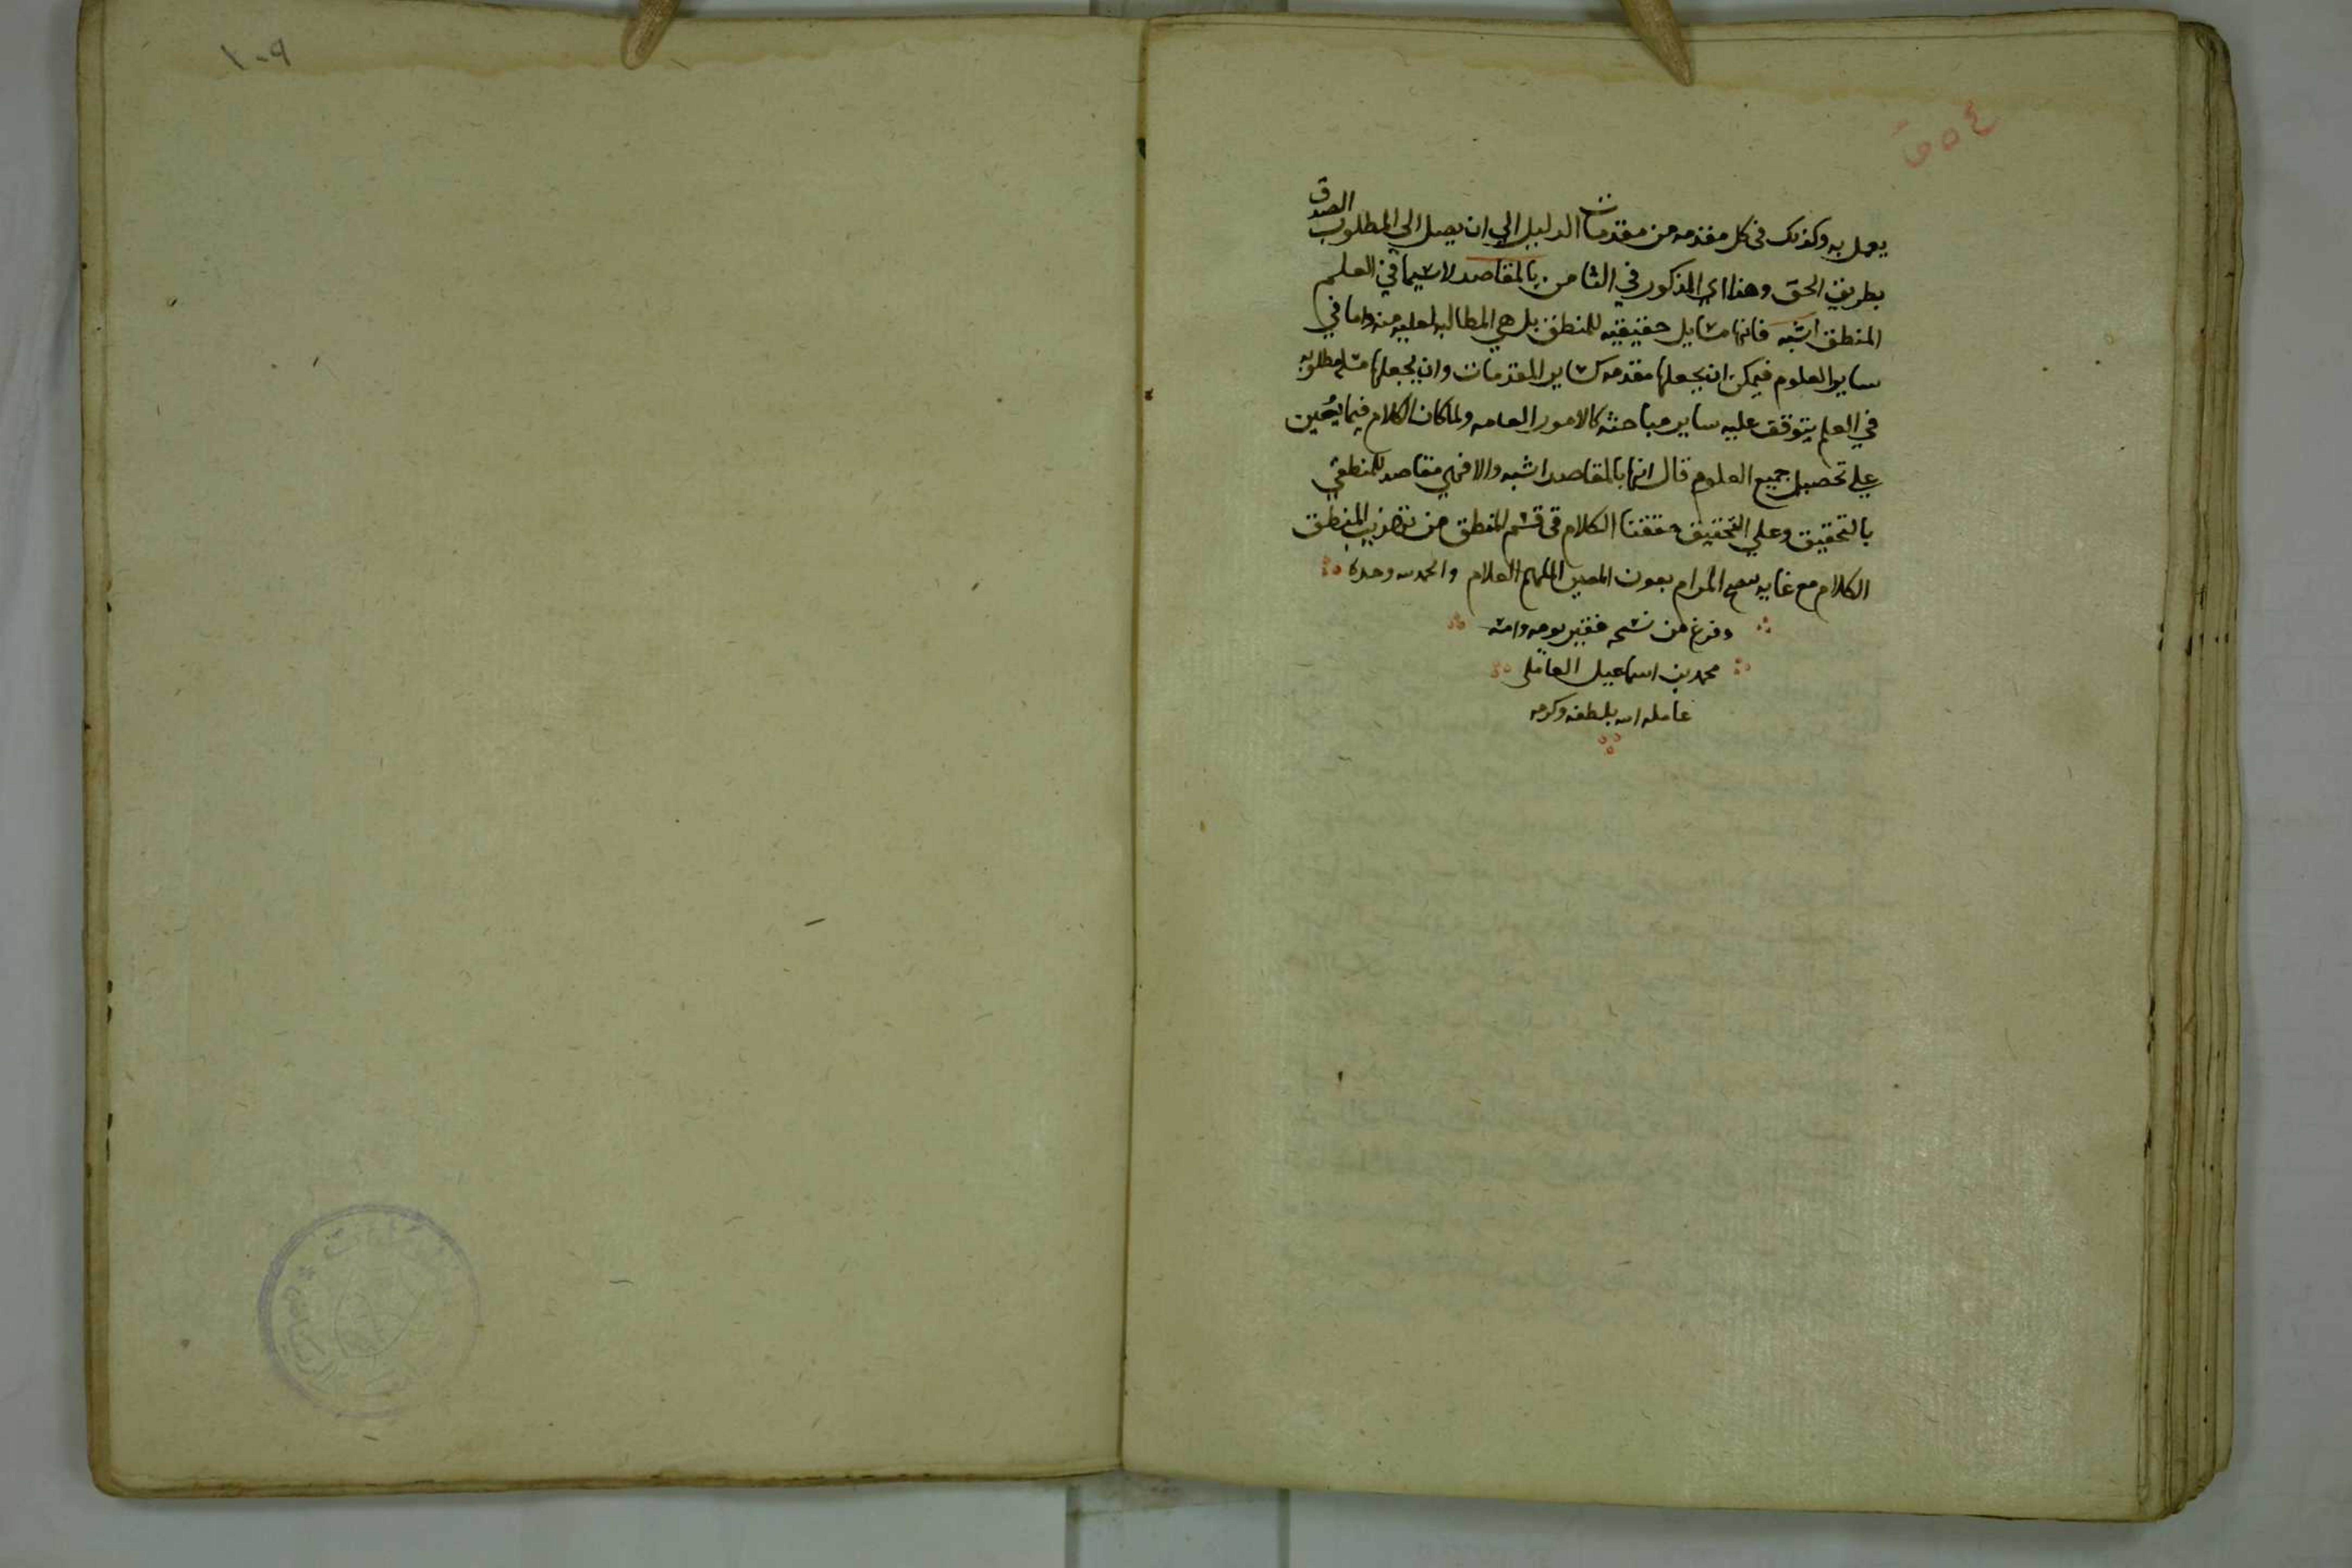 يعمل به وكذلك فى كل مقدمه من مقدمات الدليل الي ان يصل الي المطلوب الصدق
بطريق الحق وهذا اي المذكور في الثامن بالمقاصد لاسيما في العلم
المنطق اشبه فانها مسايل حقيقيه للمنطق بل هي المطالب منه واما في
ساير العلوم فيمكن ان يجعلها مقدمه كساير المقدمات وان يجعلها مطلوبه
في العلم يتوقف عليه ساير مباحثه كالامور العامه ولما كان الكلام فيما يعين
علي تحصيل جميع العلوم قال انها بالمقاصد اشبه والا فهي مقاصد للمنطقي
بالتحقيق وعلي التحقيق حققنا الكلام في قسم المنطق من تهذيب المنطق
الكلام مع غايه المرام بعون المعين الملهم العلام والحمد لله وحده
وفرغ من نسخه فقير يومه وامسه
محمد بن اسماعيل العاملى
عامله الله بلطفه وكرمه
١٠٩